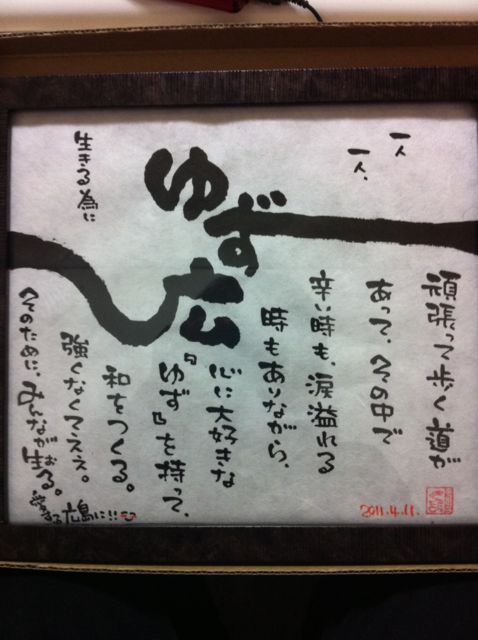 一人
一人、
頑張って歩く道が
あって、その中で
辛い時も、涙溢れる
時もありながら、
ゆず
広
心に大好きな
『ゆず』を持って、
和をつくる。
生きる為に
強くなくてええ。
そのために、みんなが生る。
広島に!!
2011.4.11.